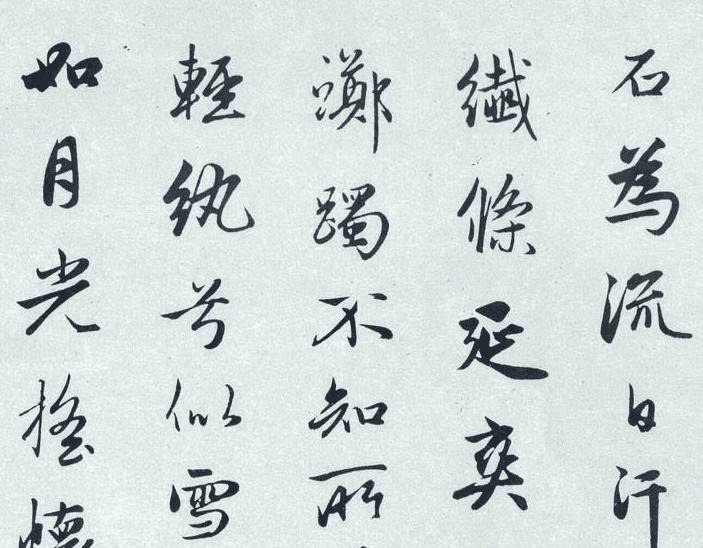 石為流日汗
纖條延奕
躑躅不知所
輕紈兮似雪
如月光搖懷